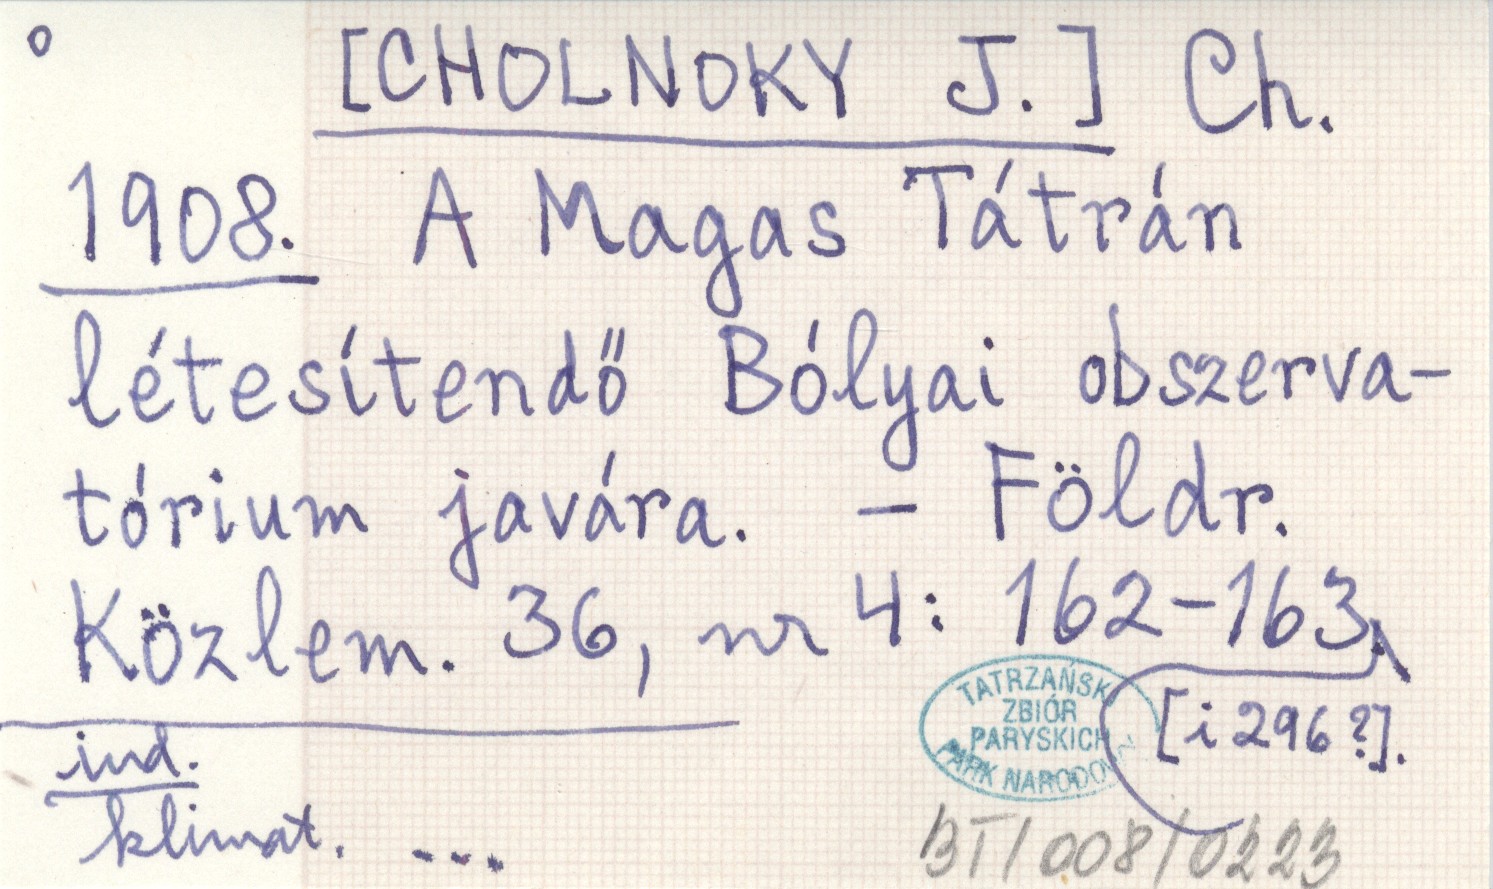 [CHOLNOKY J.] Ch.
1908. A Magas Tátrán
létesítendő Bólyai obszerva-
tórium javára. – Földr.
Közlem. 36, nr 4: 162–163
[i 296?].
TATRZAŃSKI
ZBIÓR
PARYSKICH
PARK NARODOWY
ind.
klimat. ...
BT/008/0223